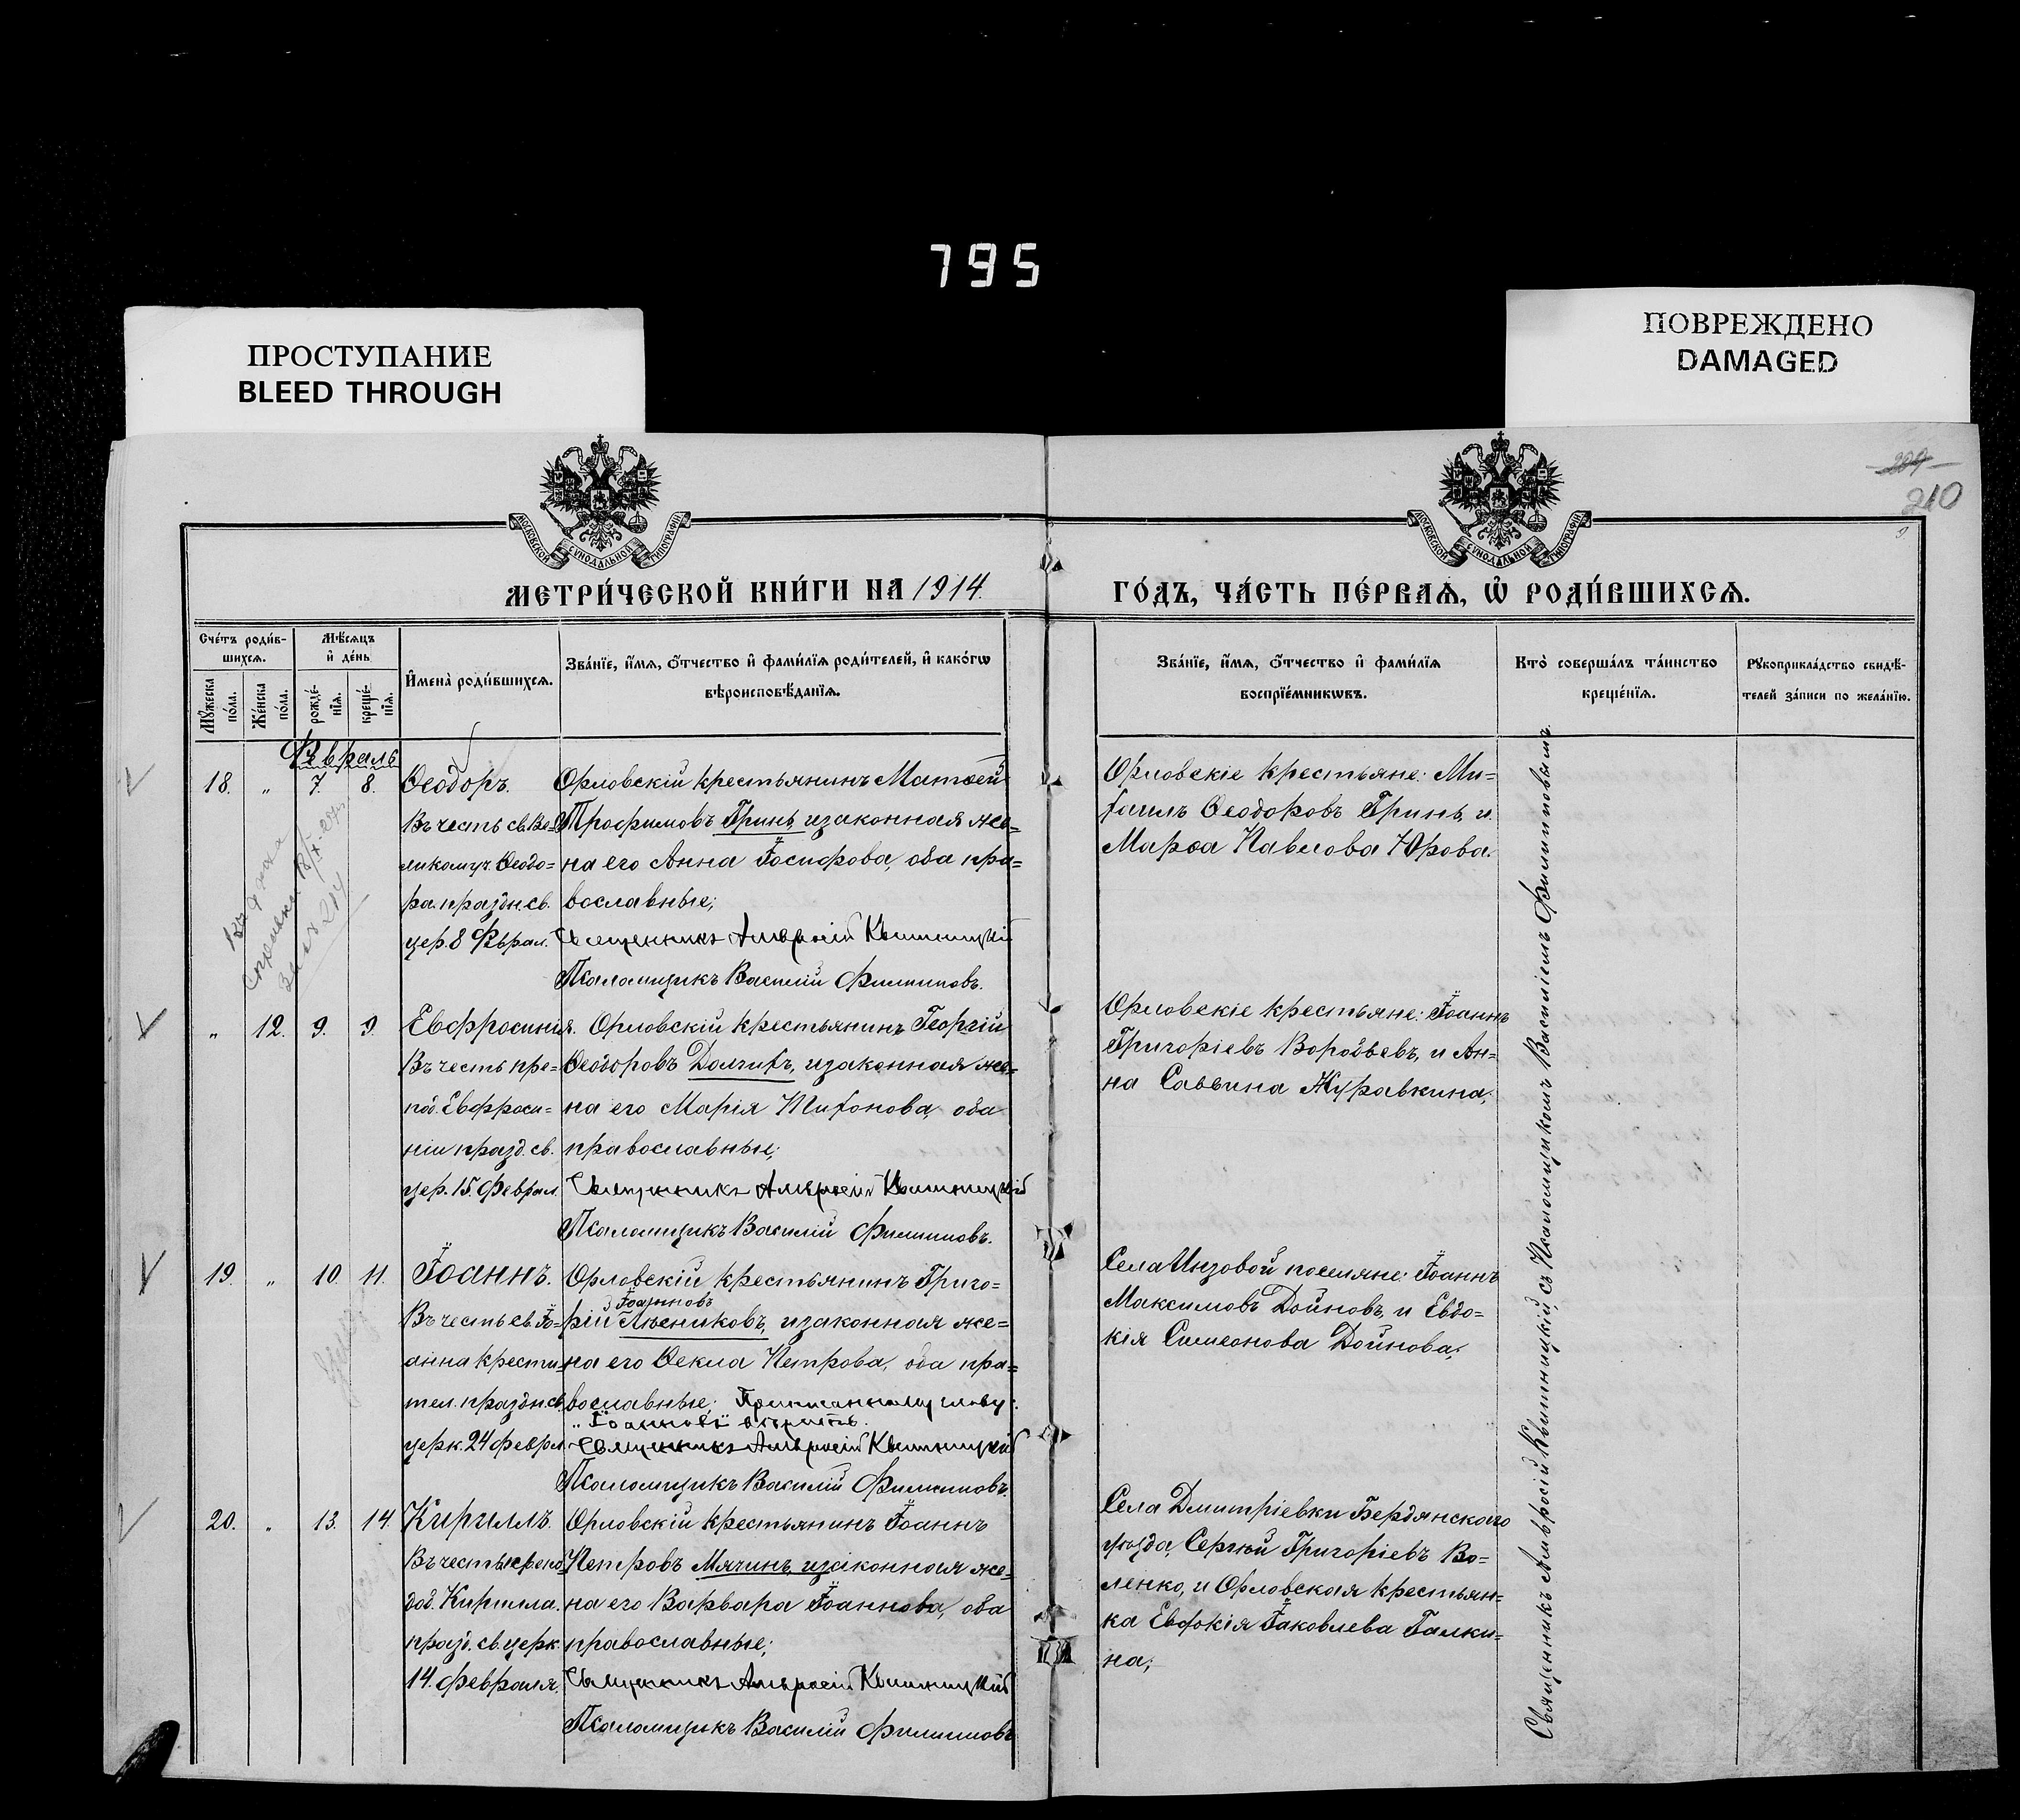 795
ПРОСТУПАНИЕ
BLEED THROUGH
ПОВРЕЖДЕНО
DAMAGED
209
210
9
МОСКОВСКОЙ СѴНОДАЛЬНОЙ ТИПОГРАФІИ
МОСКОВСКОЙ СѴНОДАЛЬНОЙ ТИПОГРАФІИ
МЕТРИ́ЧЕСКОЙ КНИ́ГИ НА 1914. ГО́ДЪ, ЧА́СТЬ ПЕ́РВАѦ, Ѡ҆ РОДИ́ВШИХСѦ.
Сче́тъ роди́в-
шихсѧ.
Мѣ́сѧцъ
и҆ де́нь
Мꙋ́жеска
по́ла.
Же́нска
по́ла.
рожде́-
нїѧ.
креще́-
нїѧ.
И҆мена̀ роди́вшихсѧ.
Зва́нїе, и҆́мѧ, ѻ҆́тчество и҆ фами́лїѧ роди́телей, и҆ како́гѡ
вѣроисповѣ́данїѧ.
Зва́нїе, и҆́мѧ, ѻ҆́тчество и҆ фами́лїѧ
воспрїе́мникѡвъ.
Кто̀ соверша́лъ та́инство
креще́нїѧ.
Рꙋкоприкла́дство свидѣ́-
телей за́писи по жела́нїю.
Февраль
18. „ 7. 8. Ѳеодоръ.
Въ честь св. Ве-
ликомуч. Ѳеодо-
ра. праздн. св.
цер. 8 Феврал.
Орловскій крестьянинъ Матѳей
Трофимовъ Гринь, и законная же-
на его Анна Іосифова, оба пра-
вославные;
Священникъ Амвросій Квитницкій
Псаломщикъ Василій Филипповъ.
Орловскіе крестьяне: Ми-
хаилъ Ѳеодоровъ Гринь, и
Марѳа Павлова Юрова.
„ 12. 9. 9. Евфросинія.
Въ честь пре-
под. Евфроси-
ніи празд. св.
цер. 15. Феврал.
Орловскій крестьянинъ Георгій
Ѳеодоровъ Долгихъ, и законная же-
на его Марія Тихонова, оба
православные;
Священникъ Амвросій Квитницкій
Псаломщикъ Василій Филипповъ.
Орловскіе крестьяне: Іоаннъ
Григоріевъ Воробьевъ, и Ан-
на Саввина Журавкина;
19. „ 10. 11. Іоаннъ.
Въ честь св. Іо-
анна крести-
тел. праздн. св.
церк. 24 феврал.
Орловскій крестьянинъ Григо-
Іоанновъ
рій Лѣсниковъ, и законная же-
на его Ѳекла Петрова, оба пра-
вославные; Приписанному слову:
„Іоанновъ" вѣрить.
Священникъ Амвросій Квитницкій
Псаломщикъ Василій Филипповъ.
Села Инзовой поселяне: Іоаннъ
Максимовъ Дойновъ, и Евдо-
кія Симеонова Дойнова;
20. „ 13. 14. Кириллъ.
Въ честь препо-
доб. Кирилла.
празд. св. церк.
14. февраля.
Орловскій крестьянинъ Іоаннъ
Петровъ Мячинъ, и законная же-
на его Варвара Іоаннова, оба
православные;
Священникъ Амвросій Квитницкій
Псаломщикъ Василій Филипповъ
Села Дмитріевки Бердянскаго
уѣзда, Сергѣй Григоріевъ Во-
ленко, и Орловская крестьян-
ка Евдокія Іаковлева Галки-
на;
Священникъ Амвросій Квитницкій, съ Псаломщикомъ Василіемъ Филипповымъ.